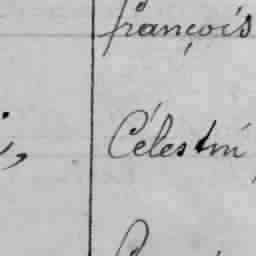 françois
Célestin